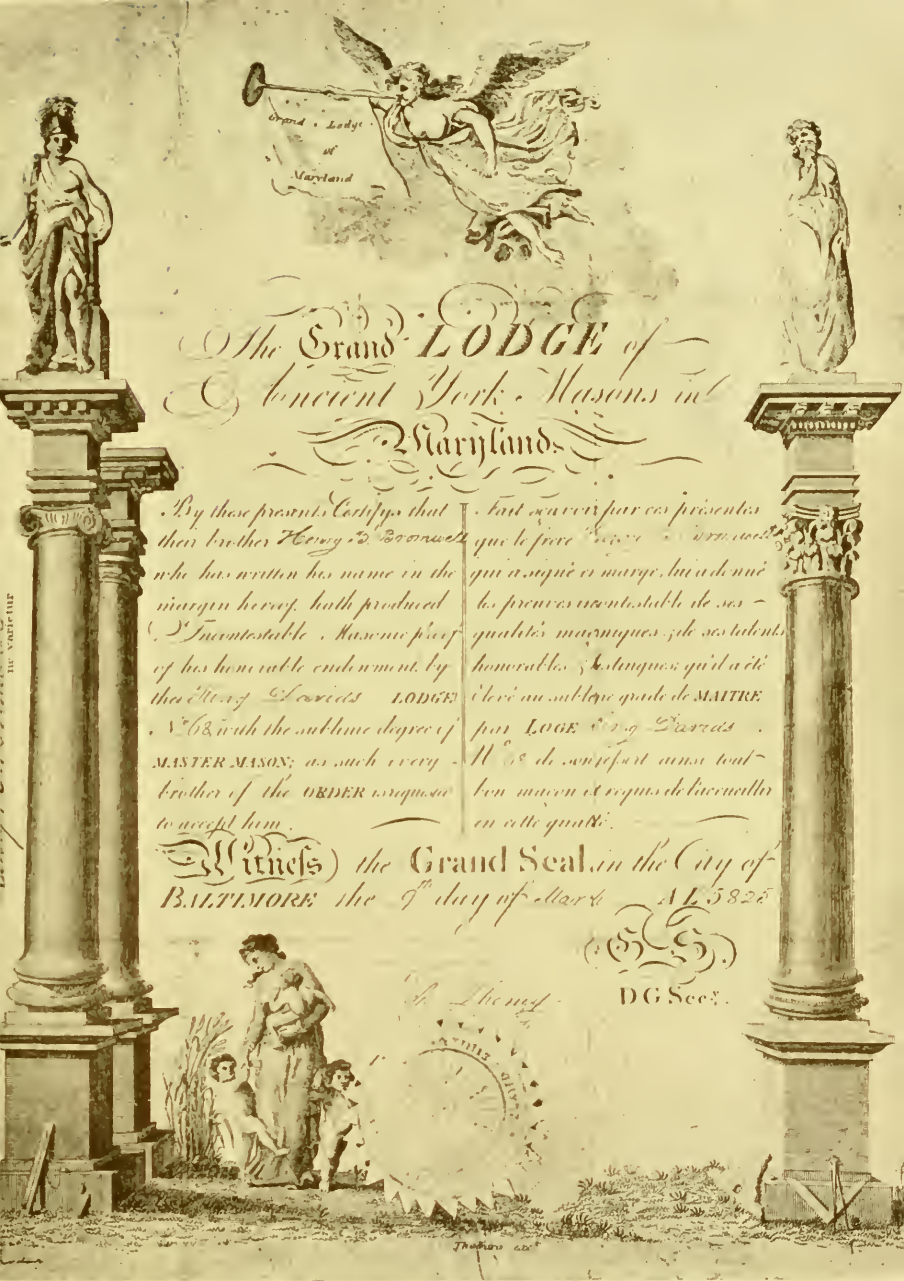 Grand Lodge
of
Maryland
The Grand LODGE of
Ancient York Masons in
Maryland.
By these presents Certifys that
their brother Henry B Bromwell
who has written his name in the
margin hereof, hath produced
Incontestable Masonic proof
of his honorable endowment by
the King Davids LODGE
No 68 with the sublime degree of
MASTER MASON; as such every
brother of the ORDER is requested
to accept him.
Fait sçavoir par ces présentes
que le frère
qui a signé en marge, lui a donné
les preuves incontestable de ses
qualités maçoniques; de ses talents
honorables distingues; qu'il a été
élevé au sublime grade de MAITRE
par LOGE King Davids
No 68 de son resort ainsi tout
bon maçon est requis de l'accueillir
en cette qualité.
Witness the Grand Seal, in the City of
BALTIMORE the 9th day of March AL 5825
G S
DG Secy.
ne varietur